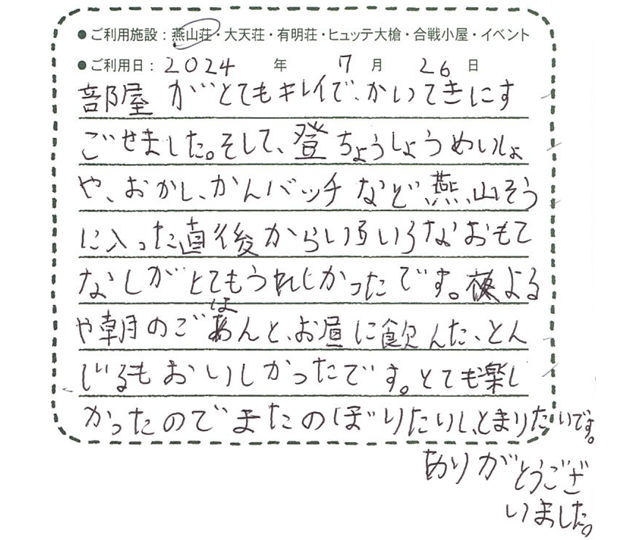 ●ご利用施設：燕山荘・大天荘・有明荘・ヒュッテ大槍・合戦小屋・イベント
●ご利用日：2024年 7月 26日
部屋がとてもキレイで、かいてきにす
ごせました。そして、登ちょうしょうめいしょ
や、おかし、かんバッチなど、燕山そう
に入った直後からいろいろなおもて
なしがとてもうれしかったです。夜よる
や朝のごはんと、お昼に飲んだ、とん
じるもおいしかったです。とても楽し
かったのでまたのぼりたいし、とまりたいです。
ありがとうござ
いました。